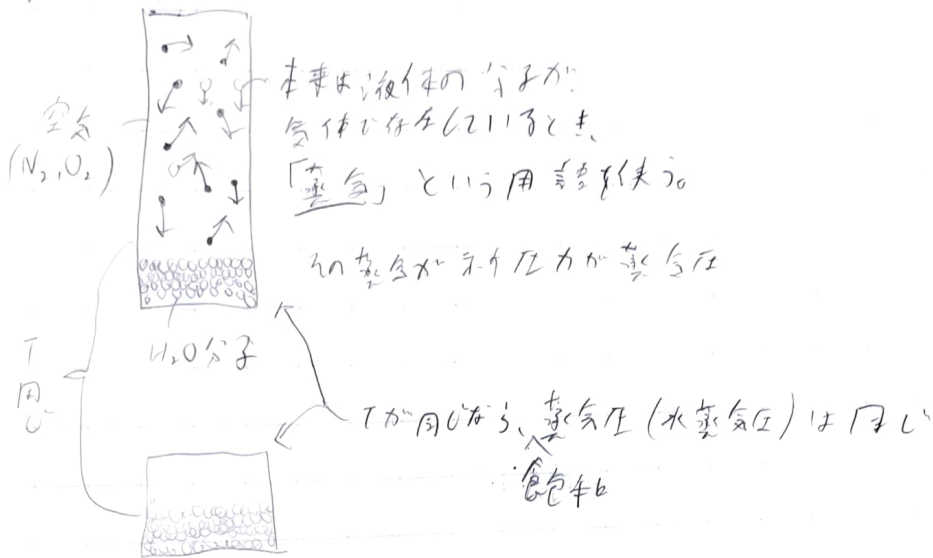 空気
(N₂,O₂)
本来は液体の分子が
気体で存在しているとき、
「蒸気」という用語を使う。
その蒸気が示す圧力が蒸気圧
H₂O分子
T
同じ
Tが同じなら、蒸気圧(水蒸気圧)は同じ
飽和